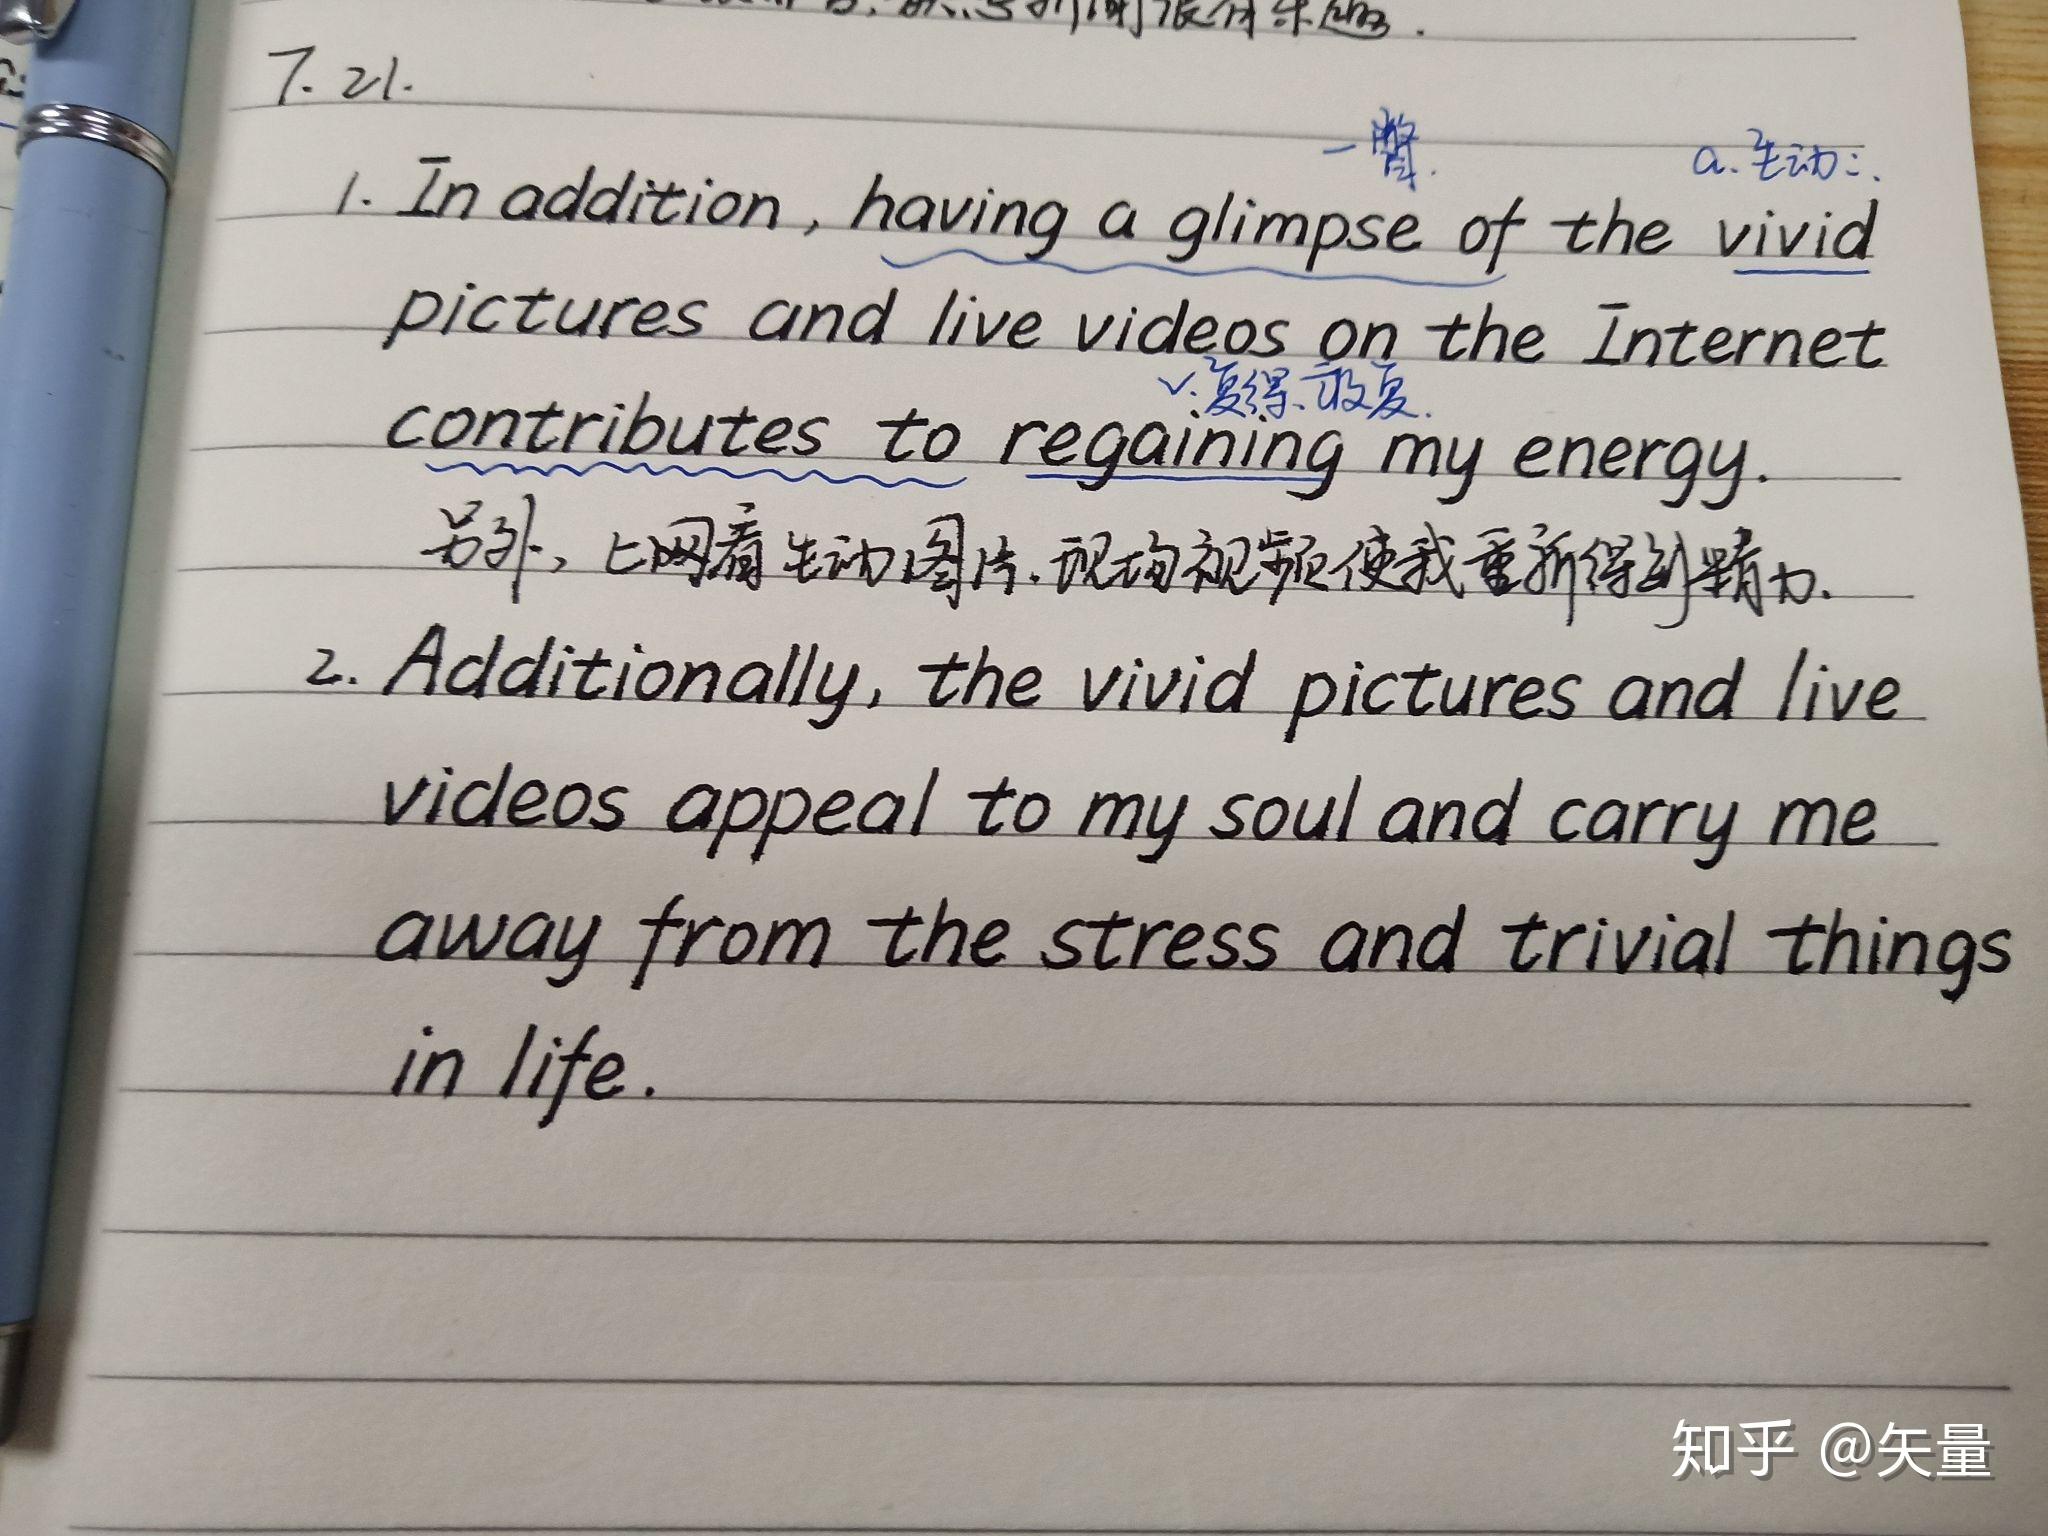 7.21.
一瞥.
a. 生动
1. In addition, having a glimpse of the vivid
pictures and live videos on the Internet
v. 复得、
contributes to regaining my energy.
另外, 上网看生动图片、现场视频使我重新得到精力.
2. Additionally, the vivid pictures and live
videos appeal to my soul and carry me
away from the stress and trivial things
in life.
知乎 @矢量